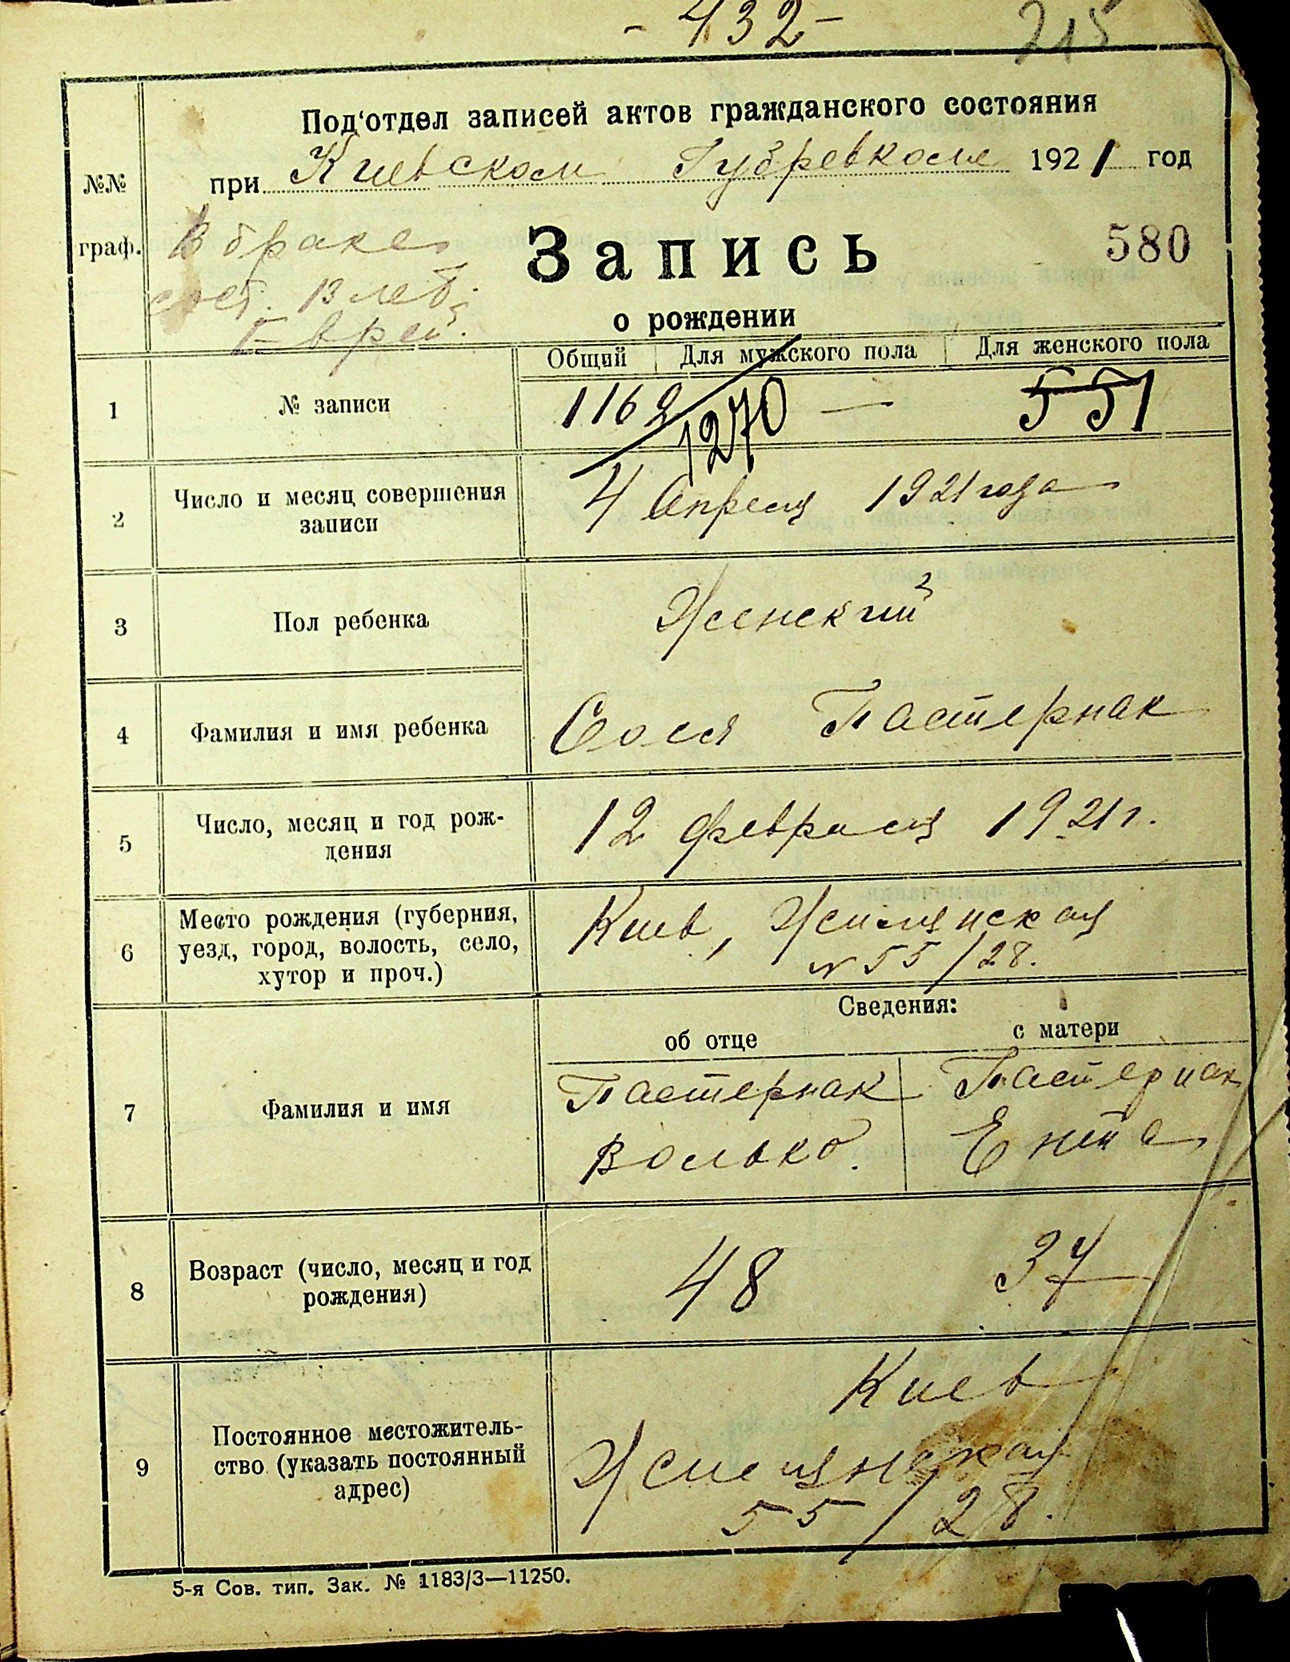 - 432 -
215
Под'отдел записей актов гражданского состояния
при Киевском Губревкоме 1921 год
№№
граф.
В браке
сост. 13 лет.
Запись
580
о рождении
Общий Для мужского пола Для женского пола
1 № записи 1162 1270 — 551
2 Число и месяц совершения
записи
4 Апреля 1921 года
3 Пол ребенка Женский
4 Фамилия и имя ребенка Сося Пастернак
5 Число, месяц и год рож-
дения
12 февраля 1921 г.
6 Место рождения (губерния,
уезд, город, волость, село,
хутор и проч.)
Киев, Жилянская
№ 55/28.
Сведения:
об отце с матери
7 Фамилия и имя
Пастернак Пастернак
Волько. Ента
8 Возраст (число, месяц и год
рождения)
48 37
9 Постоянное местожитель-
ство (указать постоянный
адрес)
Киев
Жилянская
55/28.
5-я Сов. тип. Зак. № 1183/3—11250.